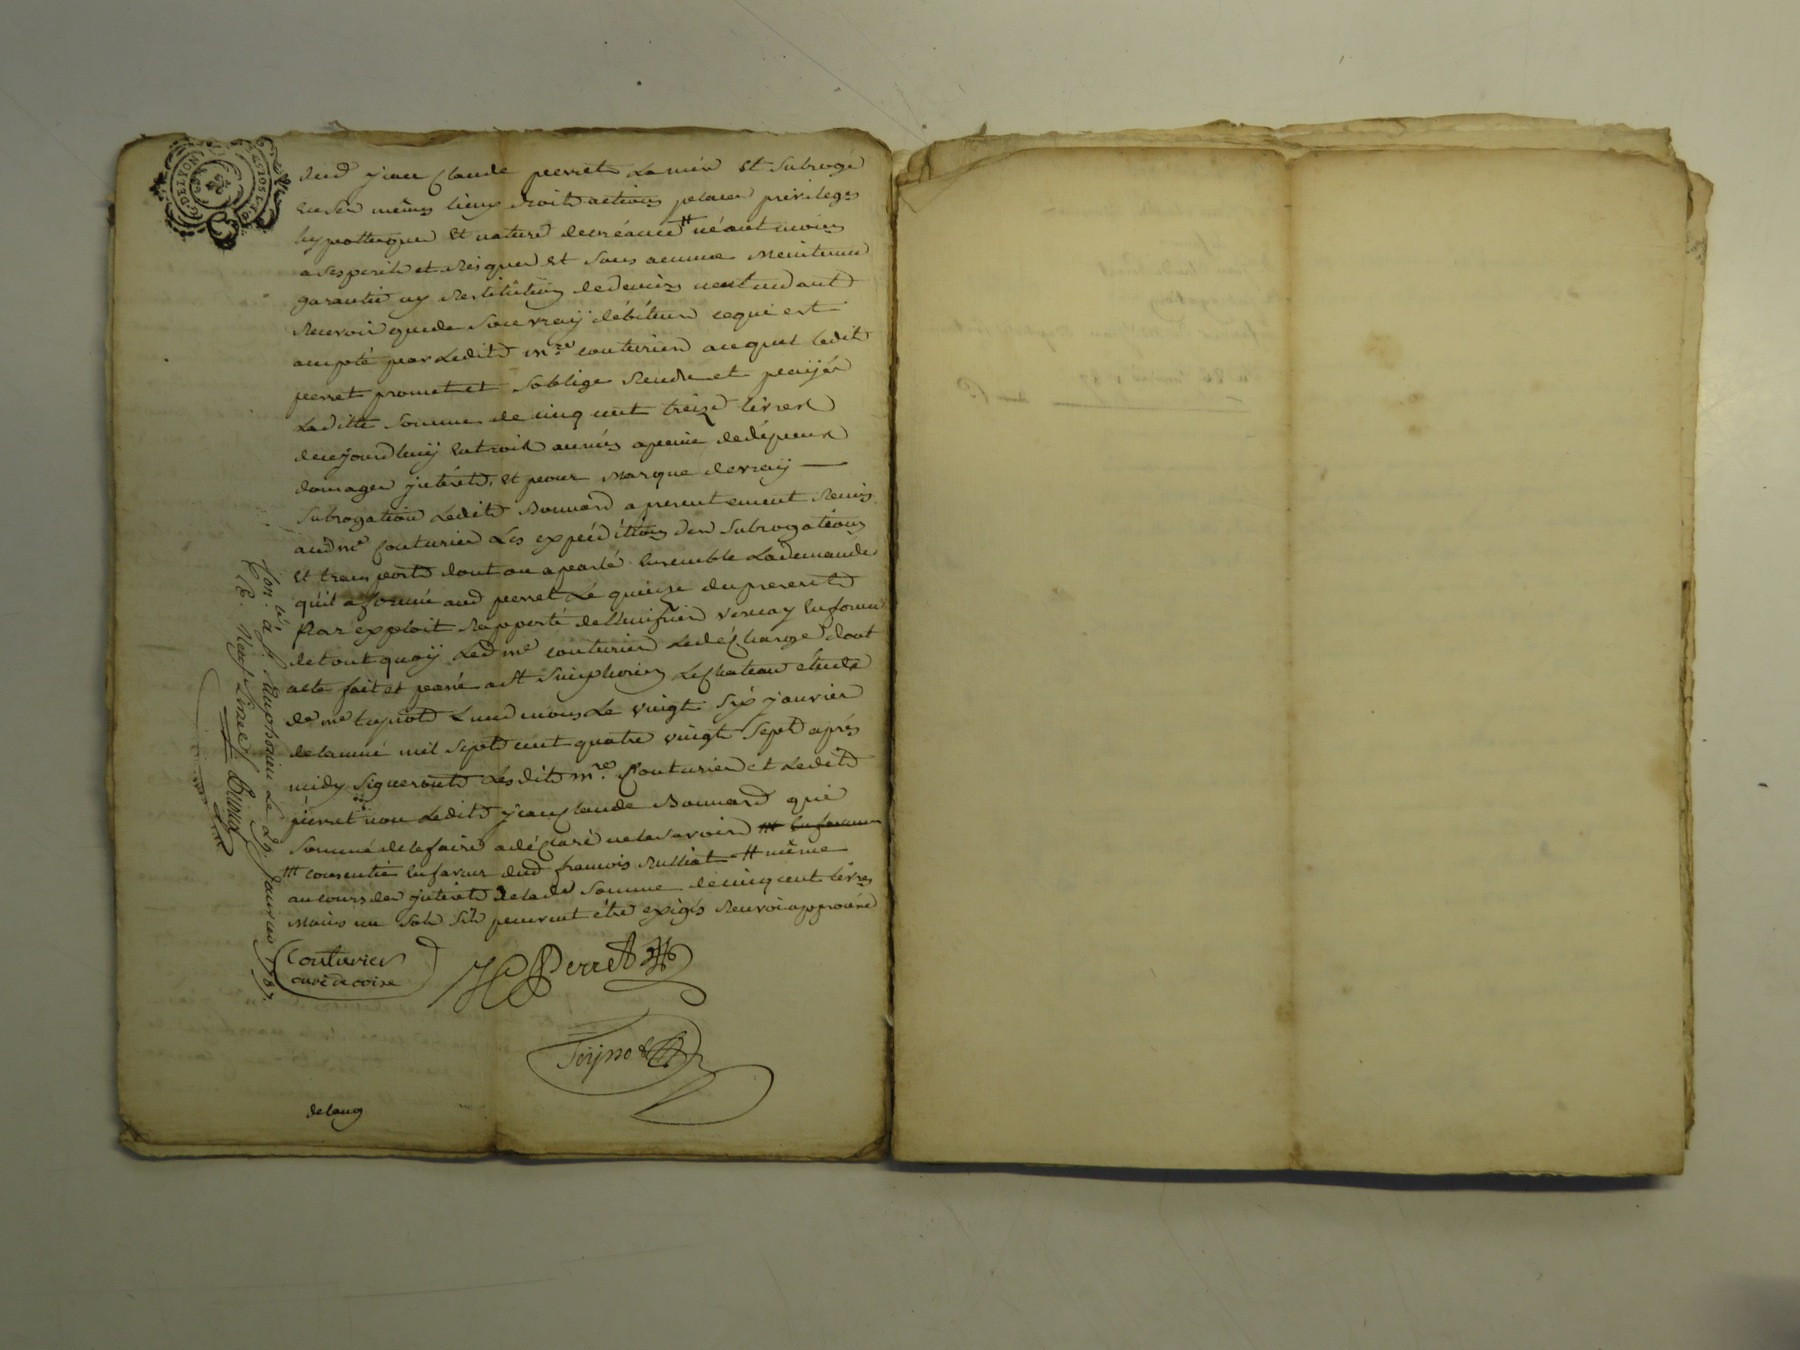 dud jean Claude perret Lamis et Subrogé
en ses mêmes lieux droits actions places privileges
hypotheques et nature de creance # néantmoins
a ses perils et Risques et Sans aucune Meintenue
garantie ny Restitution de deniers n'entendant
Recevoir que de Son vraÿ débiteur ce qui est
accepté par Ledit mre couturier auquel Ledit
perret promet et S'oblige Rendre et paÿer
Laditte Somme de cinq cent treize livres
de cejourdhuÿ en trois années a peine de dépens
domages jnterets, et pour Marque de vraÿ
Subrogation Ledit Bonnard a presentement Remis
aud me Couturier Les expéditions des Subrogations
et transports dont on a parlé ensemble La demande
qu'il a formé aud perret Le quinze du present
par exploit Rapporté de L'huissier vernay en forme
de tout quoÿ Led me couturier Le décharge dont
acte fait et passé a St Simphorien Le chateau étude
de me Lund mois Le vingt Six janvier
de L'année mil Sept cent quatre vingt Sept après
midy Signeront Lesdits mre Couturier et Ledit
perret non Ledit jean claude Bonnard qui
Sommé de le faire a déclaré ne le Savoir
consentie en faveur dud françois Rulliat # même
au cours des jnterets de lade Somme de cinq cent livres
Mains un Sol S'ils peuvent être exigés Renvoi approuvé
Couturier
curé de coise
Perret
delaug
DE LYON
Con. lé à St Simphorien Le 29. Janvier 1787.